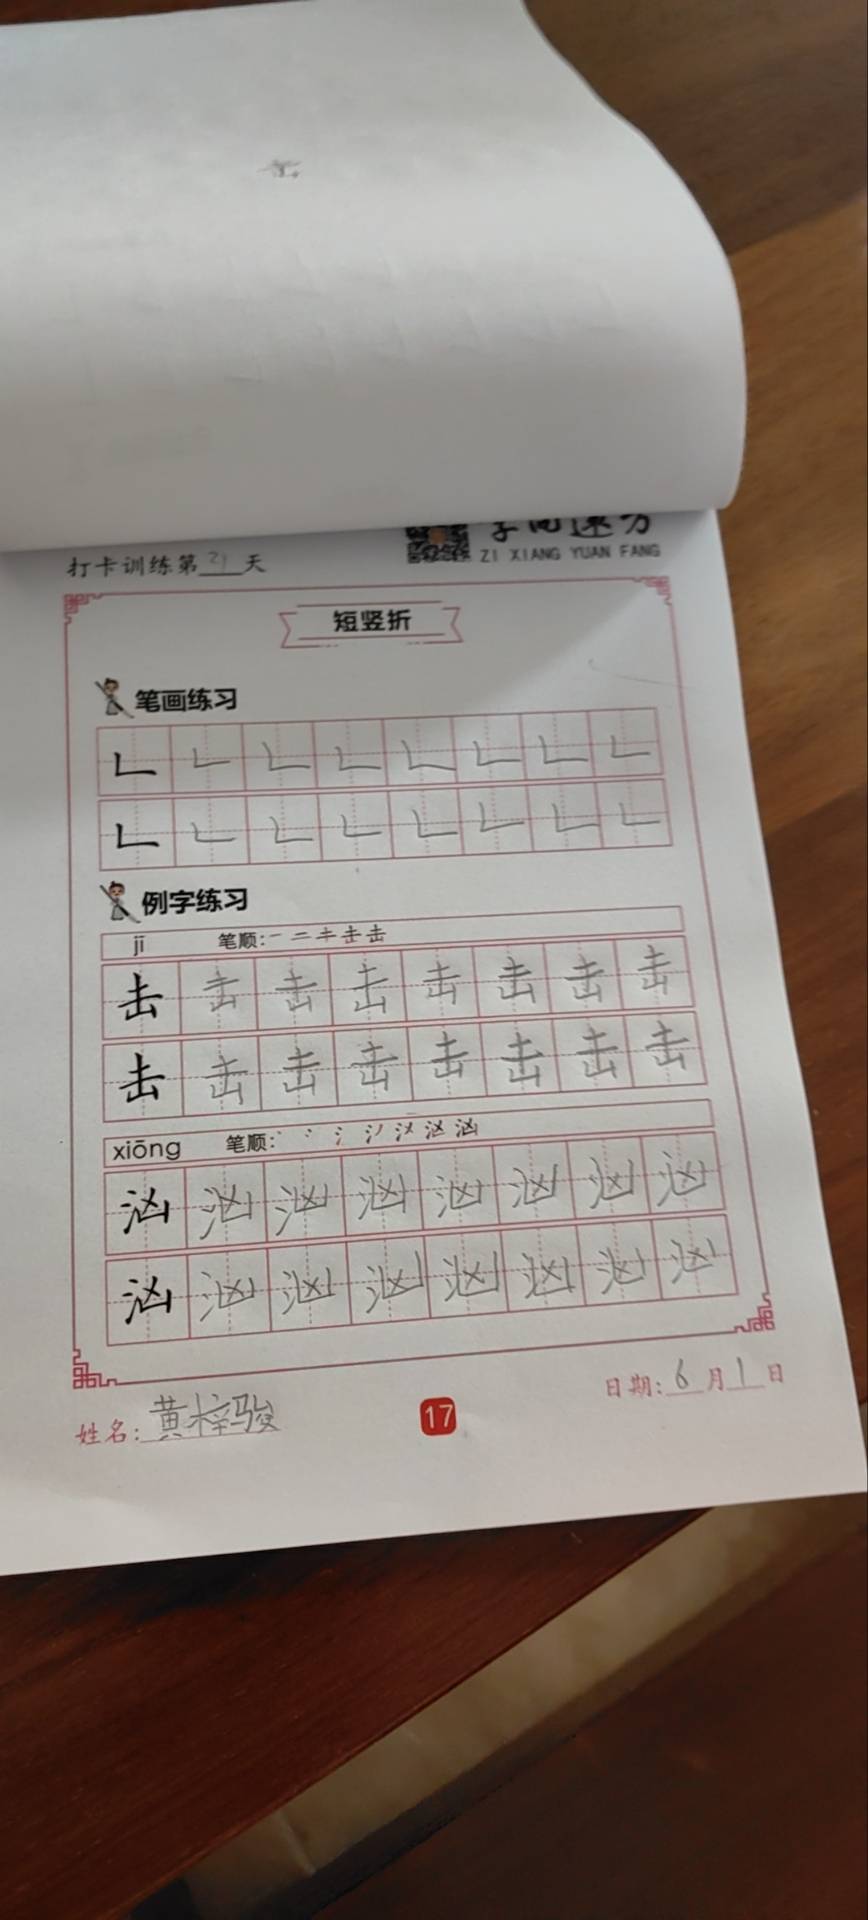 打卡训练第21天
ZI XIANG YUAN FANG
短竖折
笔画练习
𠃊 𠃊 𠃊 𠃊 𠃊 𠃊 𠃊 𠃊
𠃊 𠃊 𠃊 𠃊 𠃊 𠃊 𠃊 𠃊
例字练习
jī 笔顺:一 二 キ 击 击
击 击 击 击 击 击 击 击
击 击 击 击 击 击 击 击
xiōng 笔顺:丶 冫 氵 汹 汹
汹 汹 汹 汹 汹 汹 汹 汹
汹 汹 汹 汹 汹 汹 汹 汹
姓名:黄梓骏
17
日期:6月1日